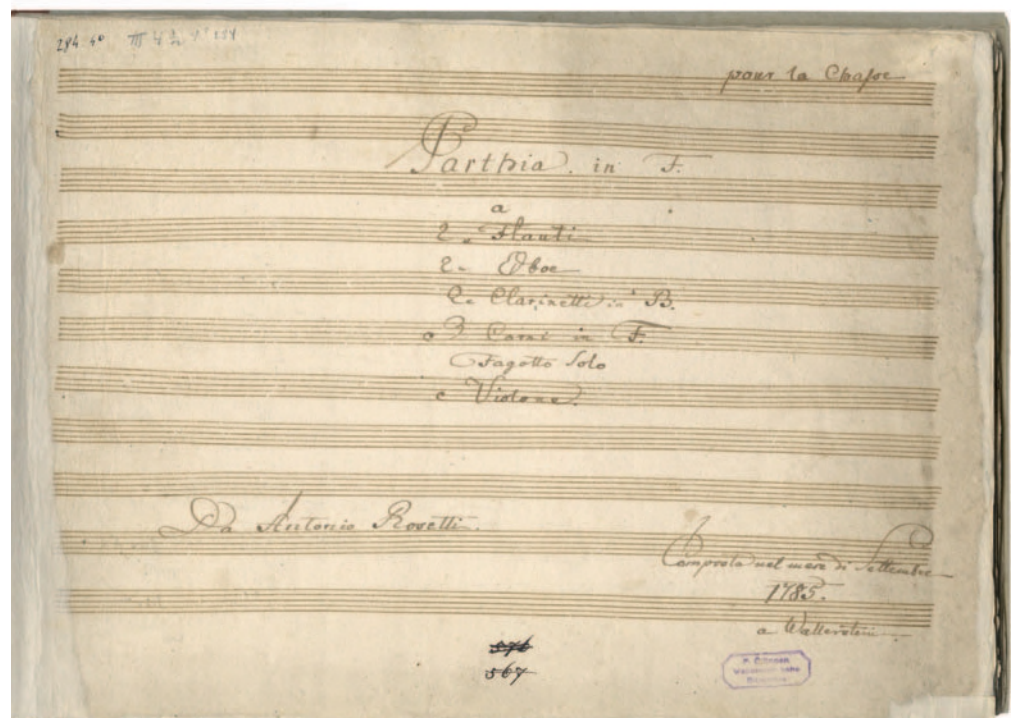 284. 4º III 4
pour la Chasse
Parthia. in F.
a
2. Flauti
2. Oboe
2. Clarinetti in B.
3 Corni in F.
Fagotto Solo
e Violone.
Da Antonio Rosetti.
Composta nel mese di Settembre
1785.
a Wallerstein.
576
567